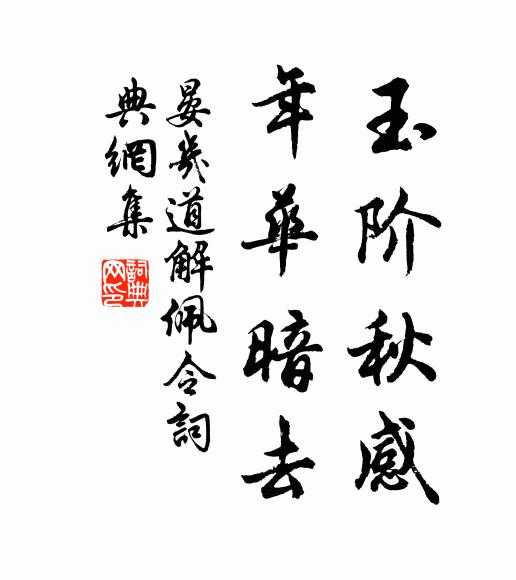 玉阶秋感
年華暗去
晏幾道解佩令詞
典網集
詞典
网印